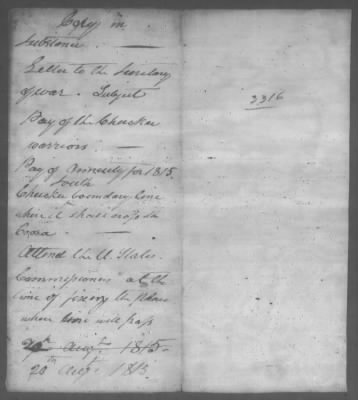 Copy in
substance —
Letter to the Secretary
of war. Subject
Pay of the Cherokee
warriors. —
Pay of Annuity for 1815.
South
boundary line
where it shall cross
Coosa. —
Attend the U States
Commissioners at the
time of fixing the place
where line will pass
20th Augt. 1815
20th Augt. 1815.
3316